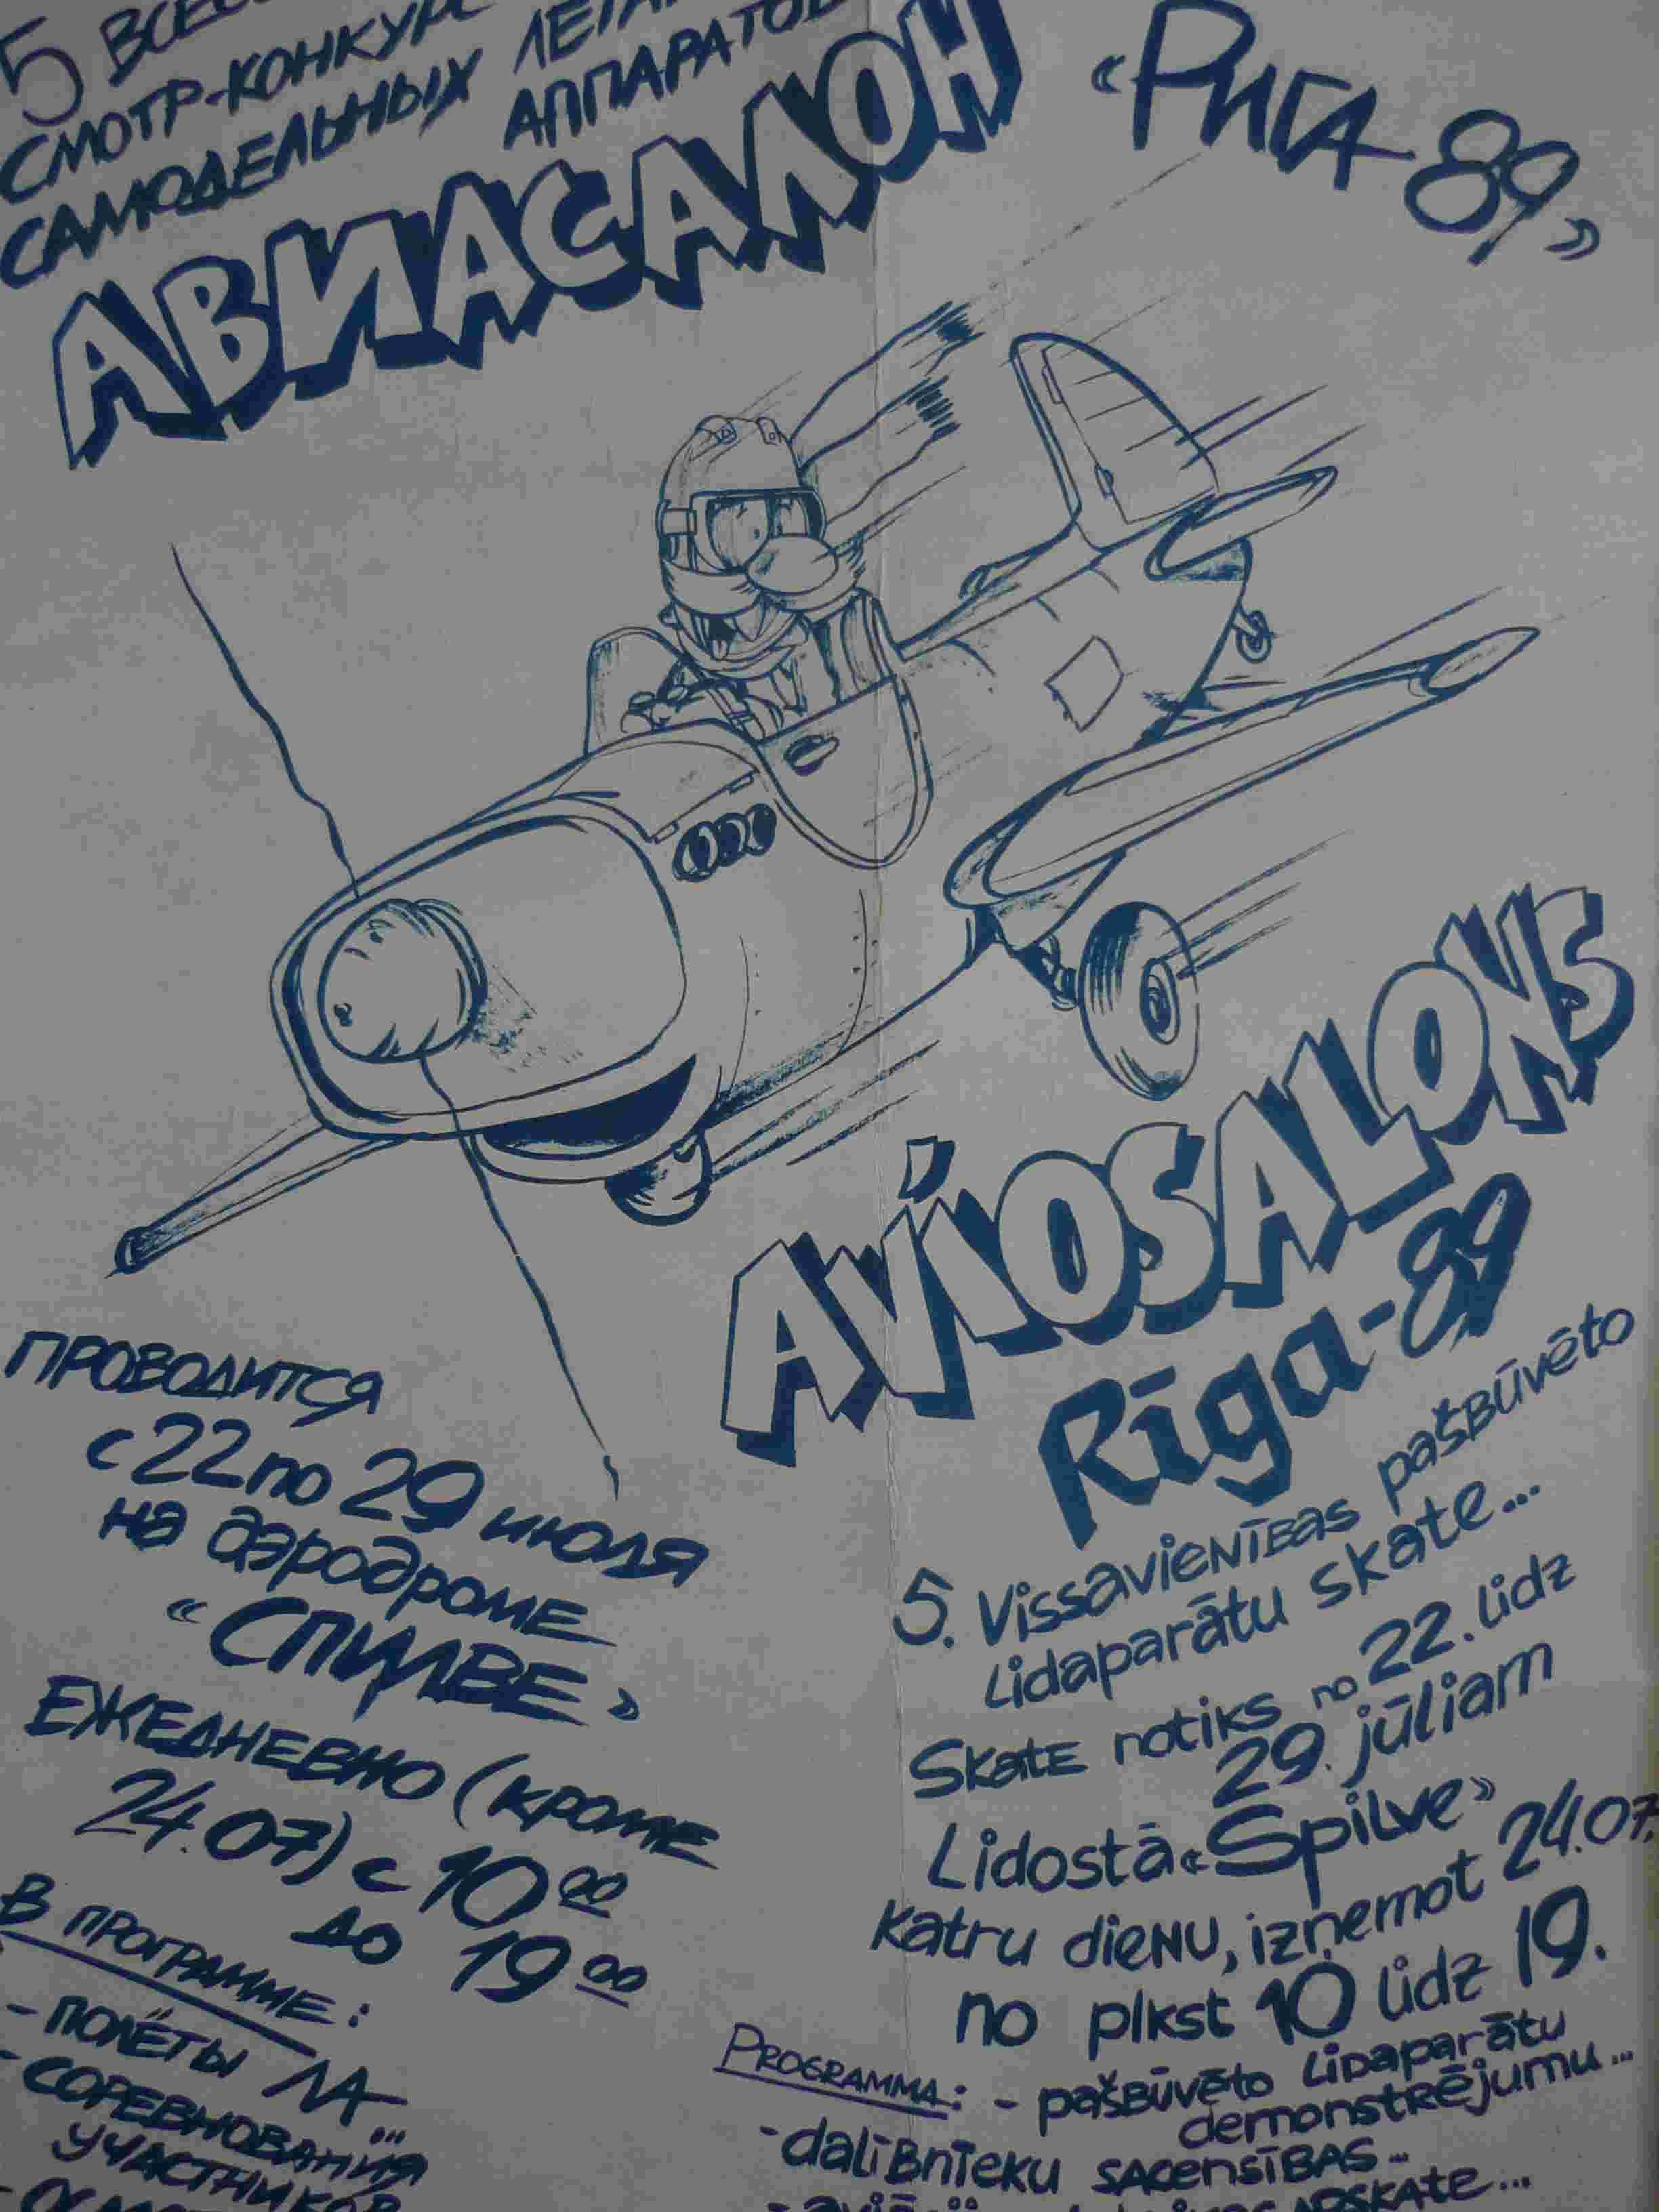 5
СМОТР-КОНКУРС
САМОДЕЛЬНЫХ
АППАРАТОВ
АВИАСАЛОН
«РИГА-89»
AVIOSALONS
Rīga-89
ПРОВОДИТСЯ
с 22 по 29 июля
на аэродроме
«СПИЛВЕ»
ЕЖЕДНЕВНО (КРОМЕ
24.07) с 10 00
до 19 00
В ПРОГРАММЕ:
- ПОЛЁТЫ ЛА...
- СОРЕВНОВАНИЯ
УЧАСТНИКОВ
5. Vissavienības pašbūvēto
lidaparātu skate...
Skate notiks no 22. līdz
29. jūlijam
Lidostā «Spilve»
Katru dienu, izņemot 24.07.
no plkst 10 līdz 19.
PROGRAMMA: - pašbūvēto lidaparātu
demonstrējumu...
- dalībnieku sacensības...
apskate...